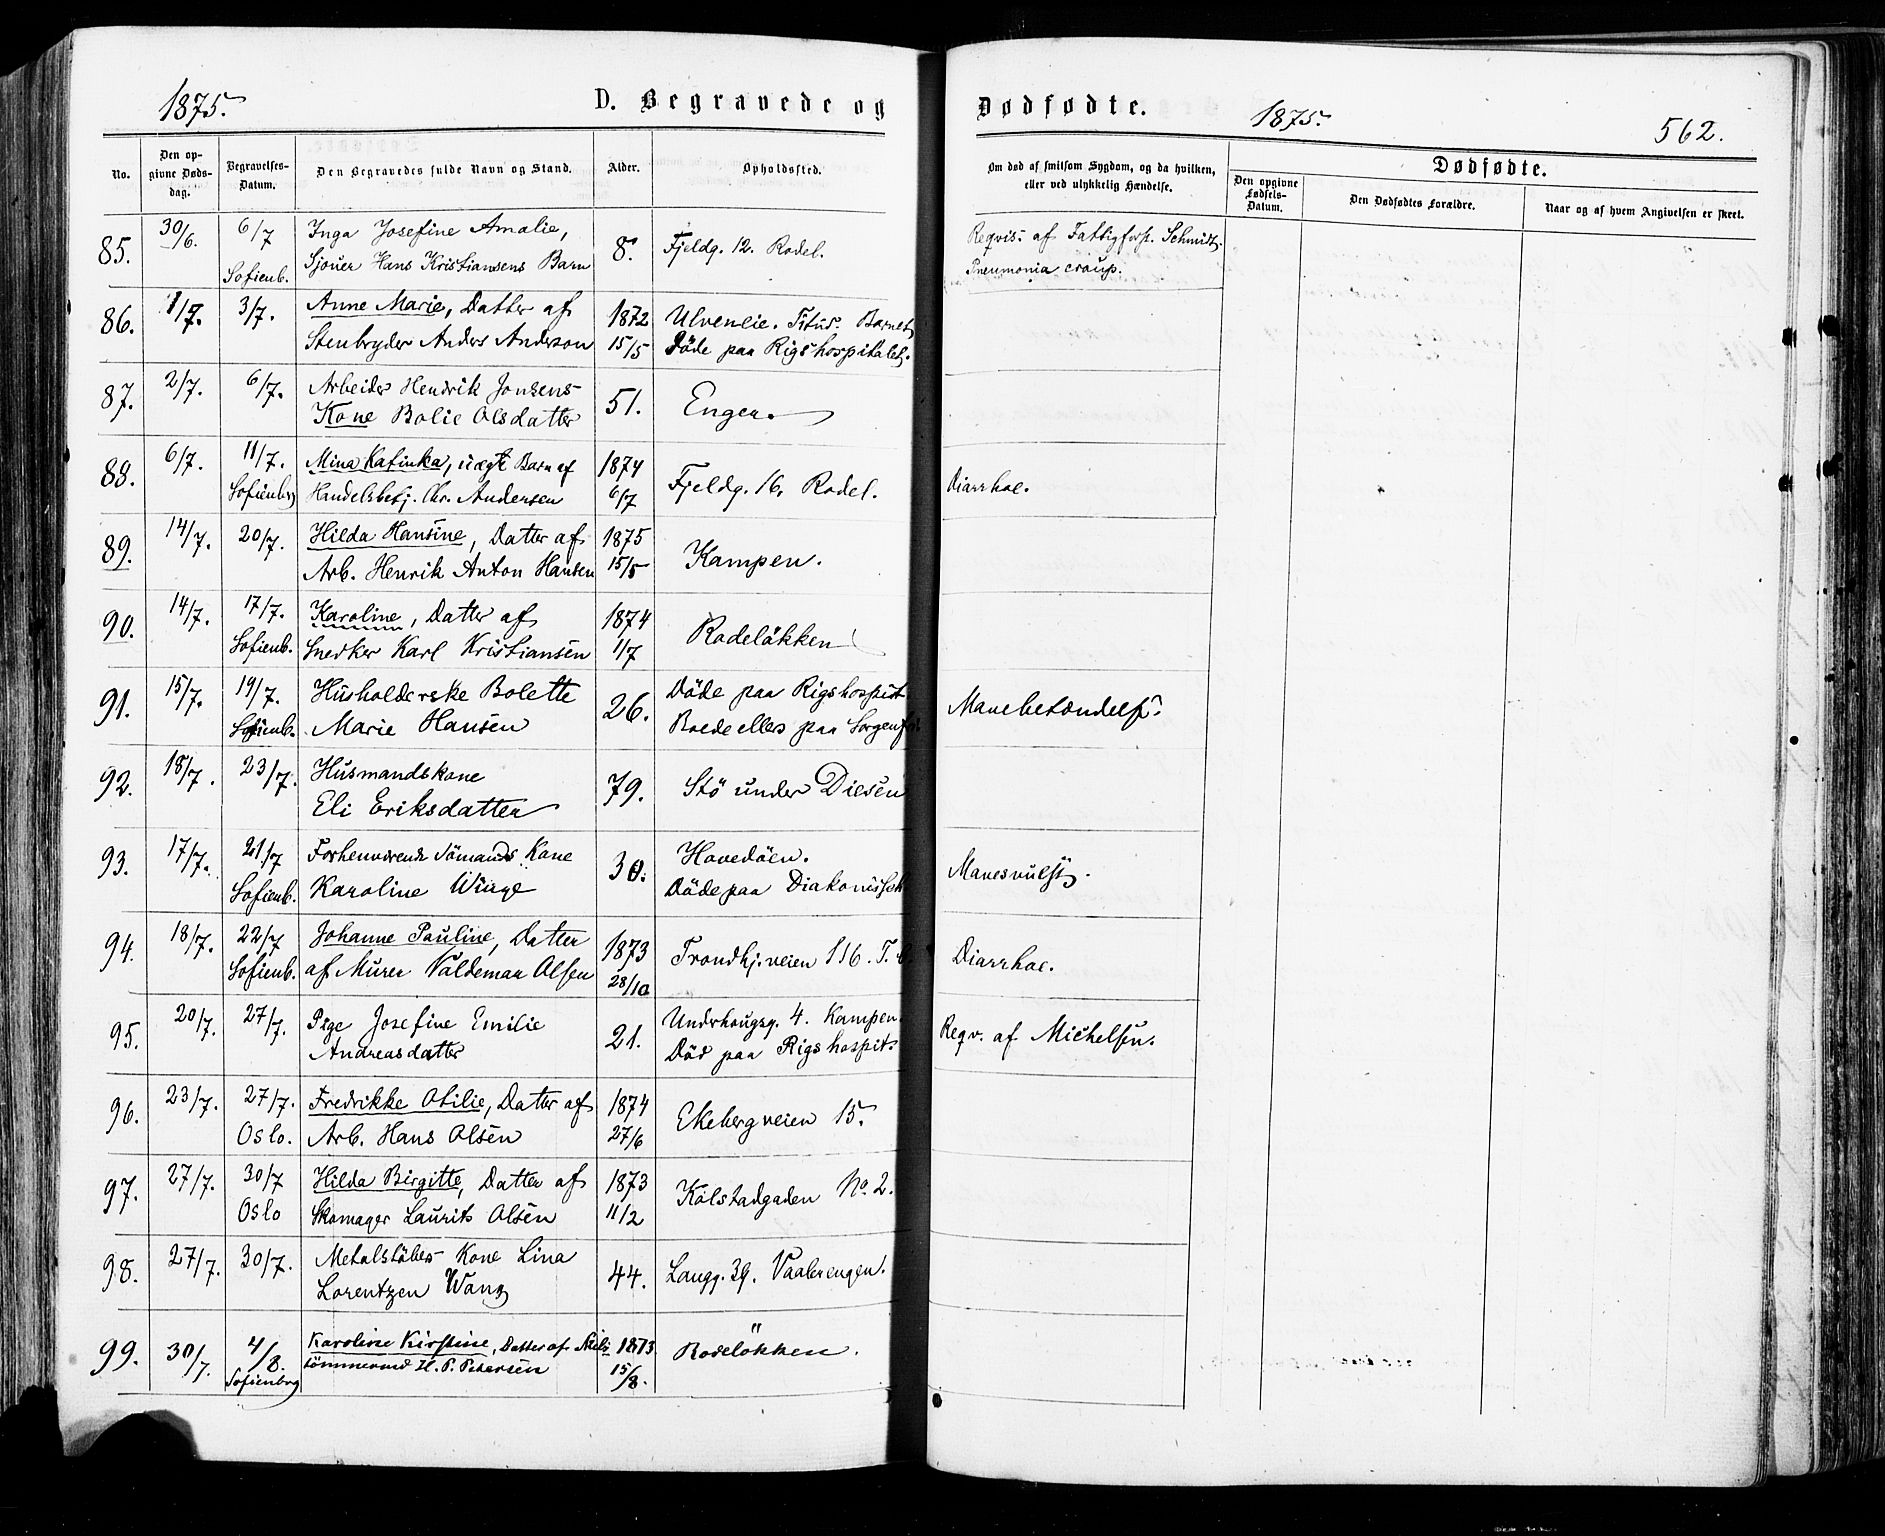 1875.
D. Begravede og
Dødfødte.
1875.
562.
No.
Den opgivne Dødsdag.
Begravelses-Datum.
Den Begravedes fulde Navn og Stand.
Alder.
Opholdssted.
Om død af smitsom Sygdom, og da hvilken, eller ved ulykkelig Hændelse.
Dødfødte.
Den opgivne Fødsels-Datum.
Den Dødfødtes Forældre.
Naar og af hvem Angivelsen er skeet.
85. 30/6. 6/7 Sofienb.
Inga Josefine Amalie,
Sjouer Hans Kristiansens Barn
8. Fjeldg. 12. Rodel.
Reqvis. af Fattigforst. Schmidt.
Pneumonia croup.
86. 1/7. 3/7.
Anne Marie, Datter af
Stenbryder Anders Anderson
1872 15/5
Ulvenlie. Barnet
Döde paa Rigshospitalet.
87. 2/7. 6/7.
Arbeider Hendrik Jonsens
Kone Bolie Olsdatter
51. Engen.
88. 6/7. 11/7. Sofienbrg
Mina Katinka, uægte Barn af
Handelsbetj. Chr. Andersen
1874 6/7
Fjeldg. 16. Rodel.
Diarrhoe.
89. 14/7. 20/7.
Hilda Hansine, Datter af
Arb. Henrik Anton Hansen
1875 15/5
Kampen.
90. 14/7. 17/7. Sofienb.
Karoline, Datter af
Snedker Karl Kristiansen
1874 1/7
Rodelökken
91. 15/7. 19/7. Sofienb.
Husholderske Bolette
Marie Hansen
26.
Döde paa Rigshospit.
Boede ellers paa Sorgenfri.
Mavebetændelse.
92. 18/7. 23/7.
Husmandskone
Eli Eriksdatter
79. Stö under Diesen
93. 17/7. 21/7 Sofienb.
Forhenværende Sömands Kone
Karoline Winge
30.
Hovedöen.
Döde paa Diakonissh
Mavesvulst.
94. 18/7. 22/7 Sofienb.
Johanne Pauline, Datter
af Murer Valdemar Olsen
1873 28/10
Trondhj.veien 116.
Diarrhoe.
95. 20/7. 27/7.
Pige Josefine Emilie
Andreasdatter
21.
Underhaugsg. 4. Kampen.
Död paa Rigshospit.
Reqv. af Michelsen.
96. 23/7. 27/7. Oslo.
Fredrikke Otilie, Datter af
Arb. Hans Olsen
1874 27/6
Ekebergveien 15.
97. 27/7. 30/7 Oslo
Hilda Birgitte, Datter af
Skomager Laurits Olsen
1873 11/2
Kölstadgaden No. 2.
98. 27/7. 30/7.
Metalstöbers Kone Lina
Lorentzen Wang
44. Langg. 39. Vaalerengen.
99. 30/7. 4/8. Sofienbrg
Karoline Kirstine, Datter af
tömmermd H. P. Petersen
1873 15/8.
Rodelökken.